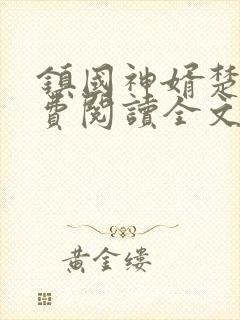 鎮國神婿楚
費閱讀全文
黃金縷